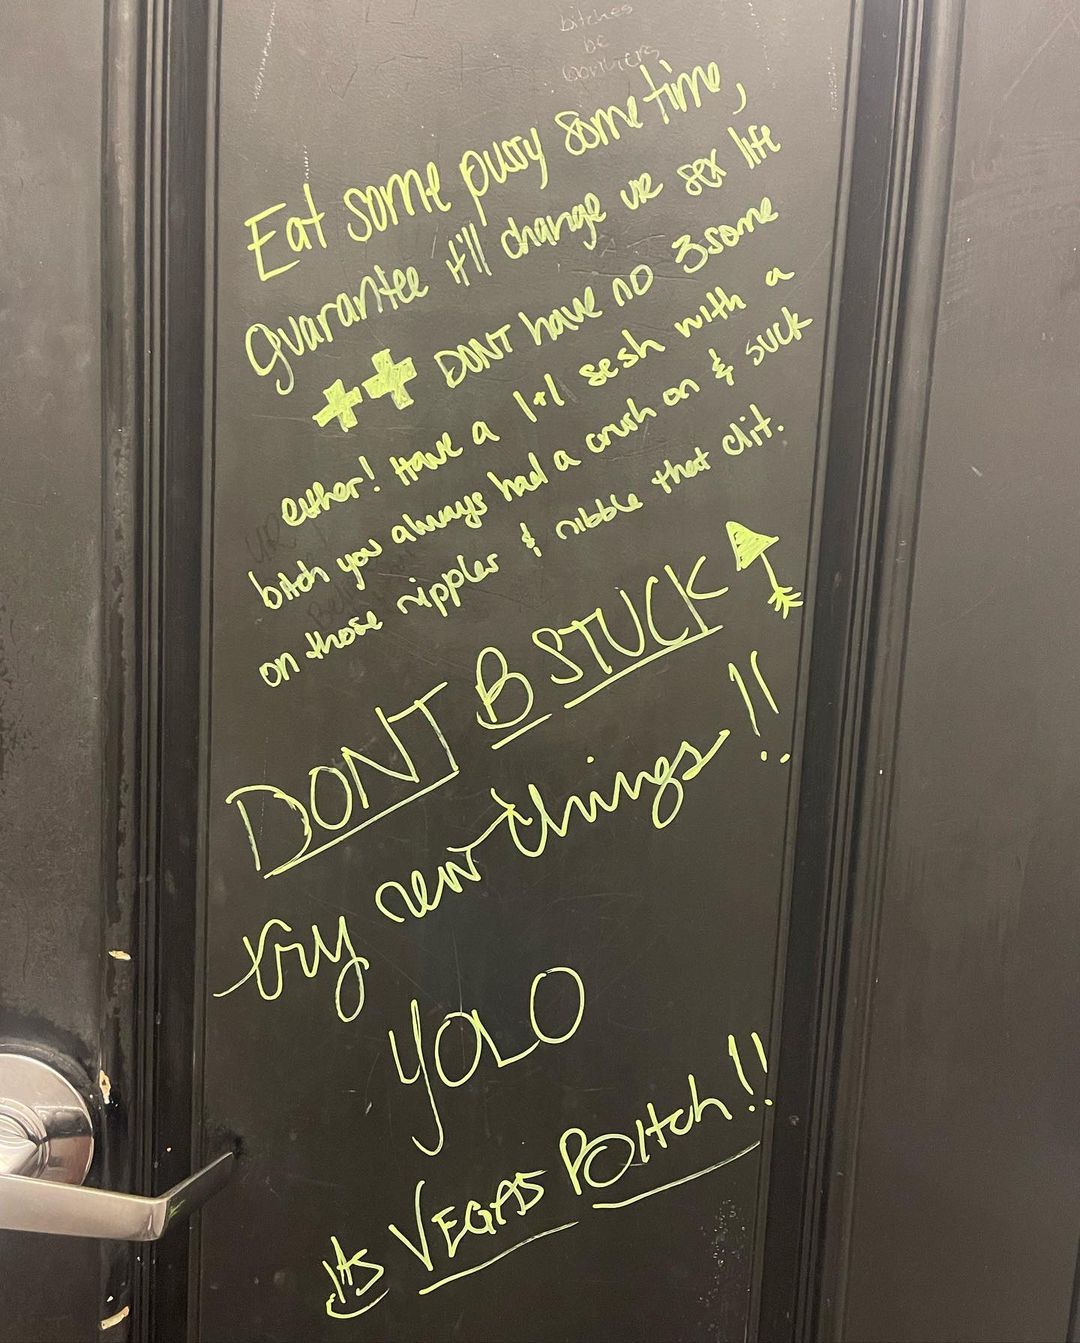 bitches
be
Eat some pussy some time,
guarantee it'll change ur sex life
++ DONT have no 3some
either! Have a 1+1 sesh with a
bitch you always had a crush on & suck
on those nipples & nibble that clit.
DONT B STUCK
try new things!!
YOLO
its VEGAS BITch!!